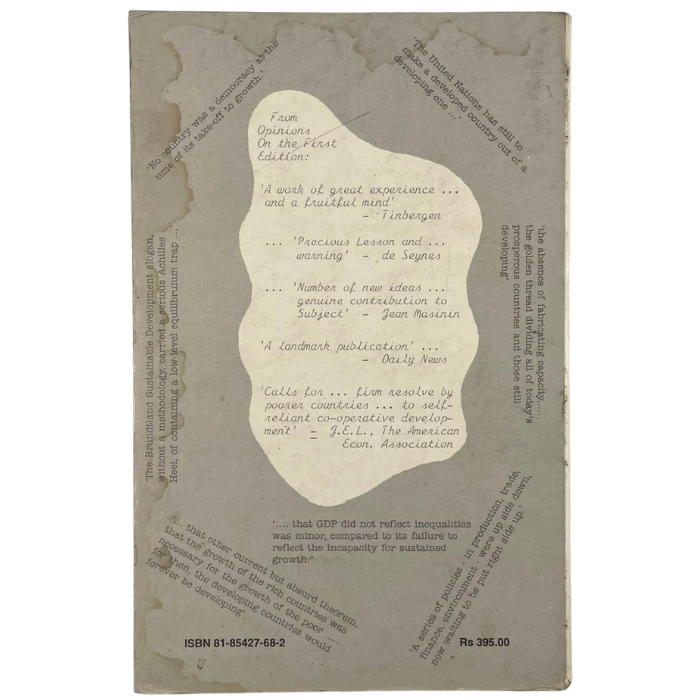 'No country was a democracy at the
time of its take-off to growth.'
'The United Nations has still to
make a developed country out of a
developing one ....'
From
Opinions
On the First
Edition:
'A work of great experience ...
and a fruitful mind'
- Tinbergen
... 'Precious Lesson and ...
warning' - de Seynes
... 'Number of new ideas ...
genuine contribution to
Subject' - Jean Masinin
'A landmark publication' ...
- Daily News
'Calls for ... firm resolve by
poorer countries ... to self-
reliant co-operative develop-
ment' - J.E.L., The American
Econ. Association
'The Brundtland Sustainable Development slogan,
without a methodology, carried a serious Achilles
Heel, of containing a low-level equilibruium trap ...'
'the absence of fabricating capacity.....
the golden thread dividing all of today's
prosperous countries and those still
developing'
'.... that other current but absurd theorem,
that the growth of the rich countries was
necessary for the growth of the poor ......
for then, the developing countries would
forever be developing'.
'.... that GDP did not reflect inequalities
was minor, compared to its failure to
reflect the incapacity for sustained
growth.'
'A series of policies - in production, trade,
finance, environment - were up side down,
now waiting to be put right side up.'
ISBN 81-85427-68-2
Rs 395.00